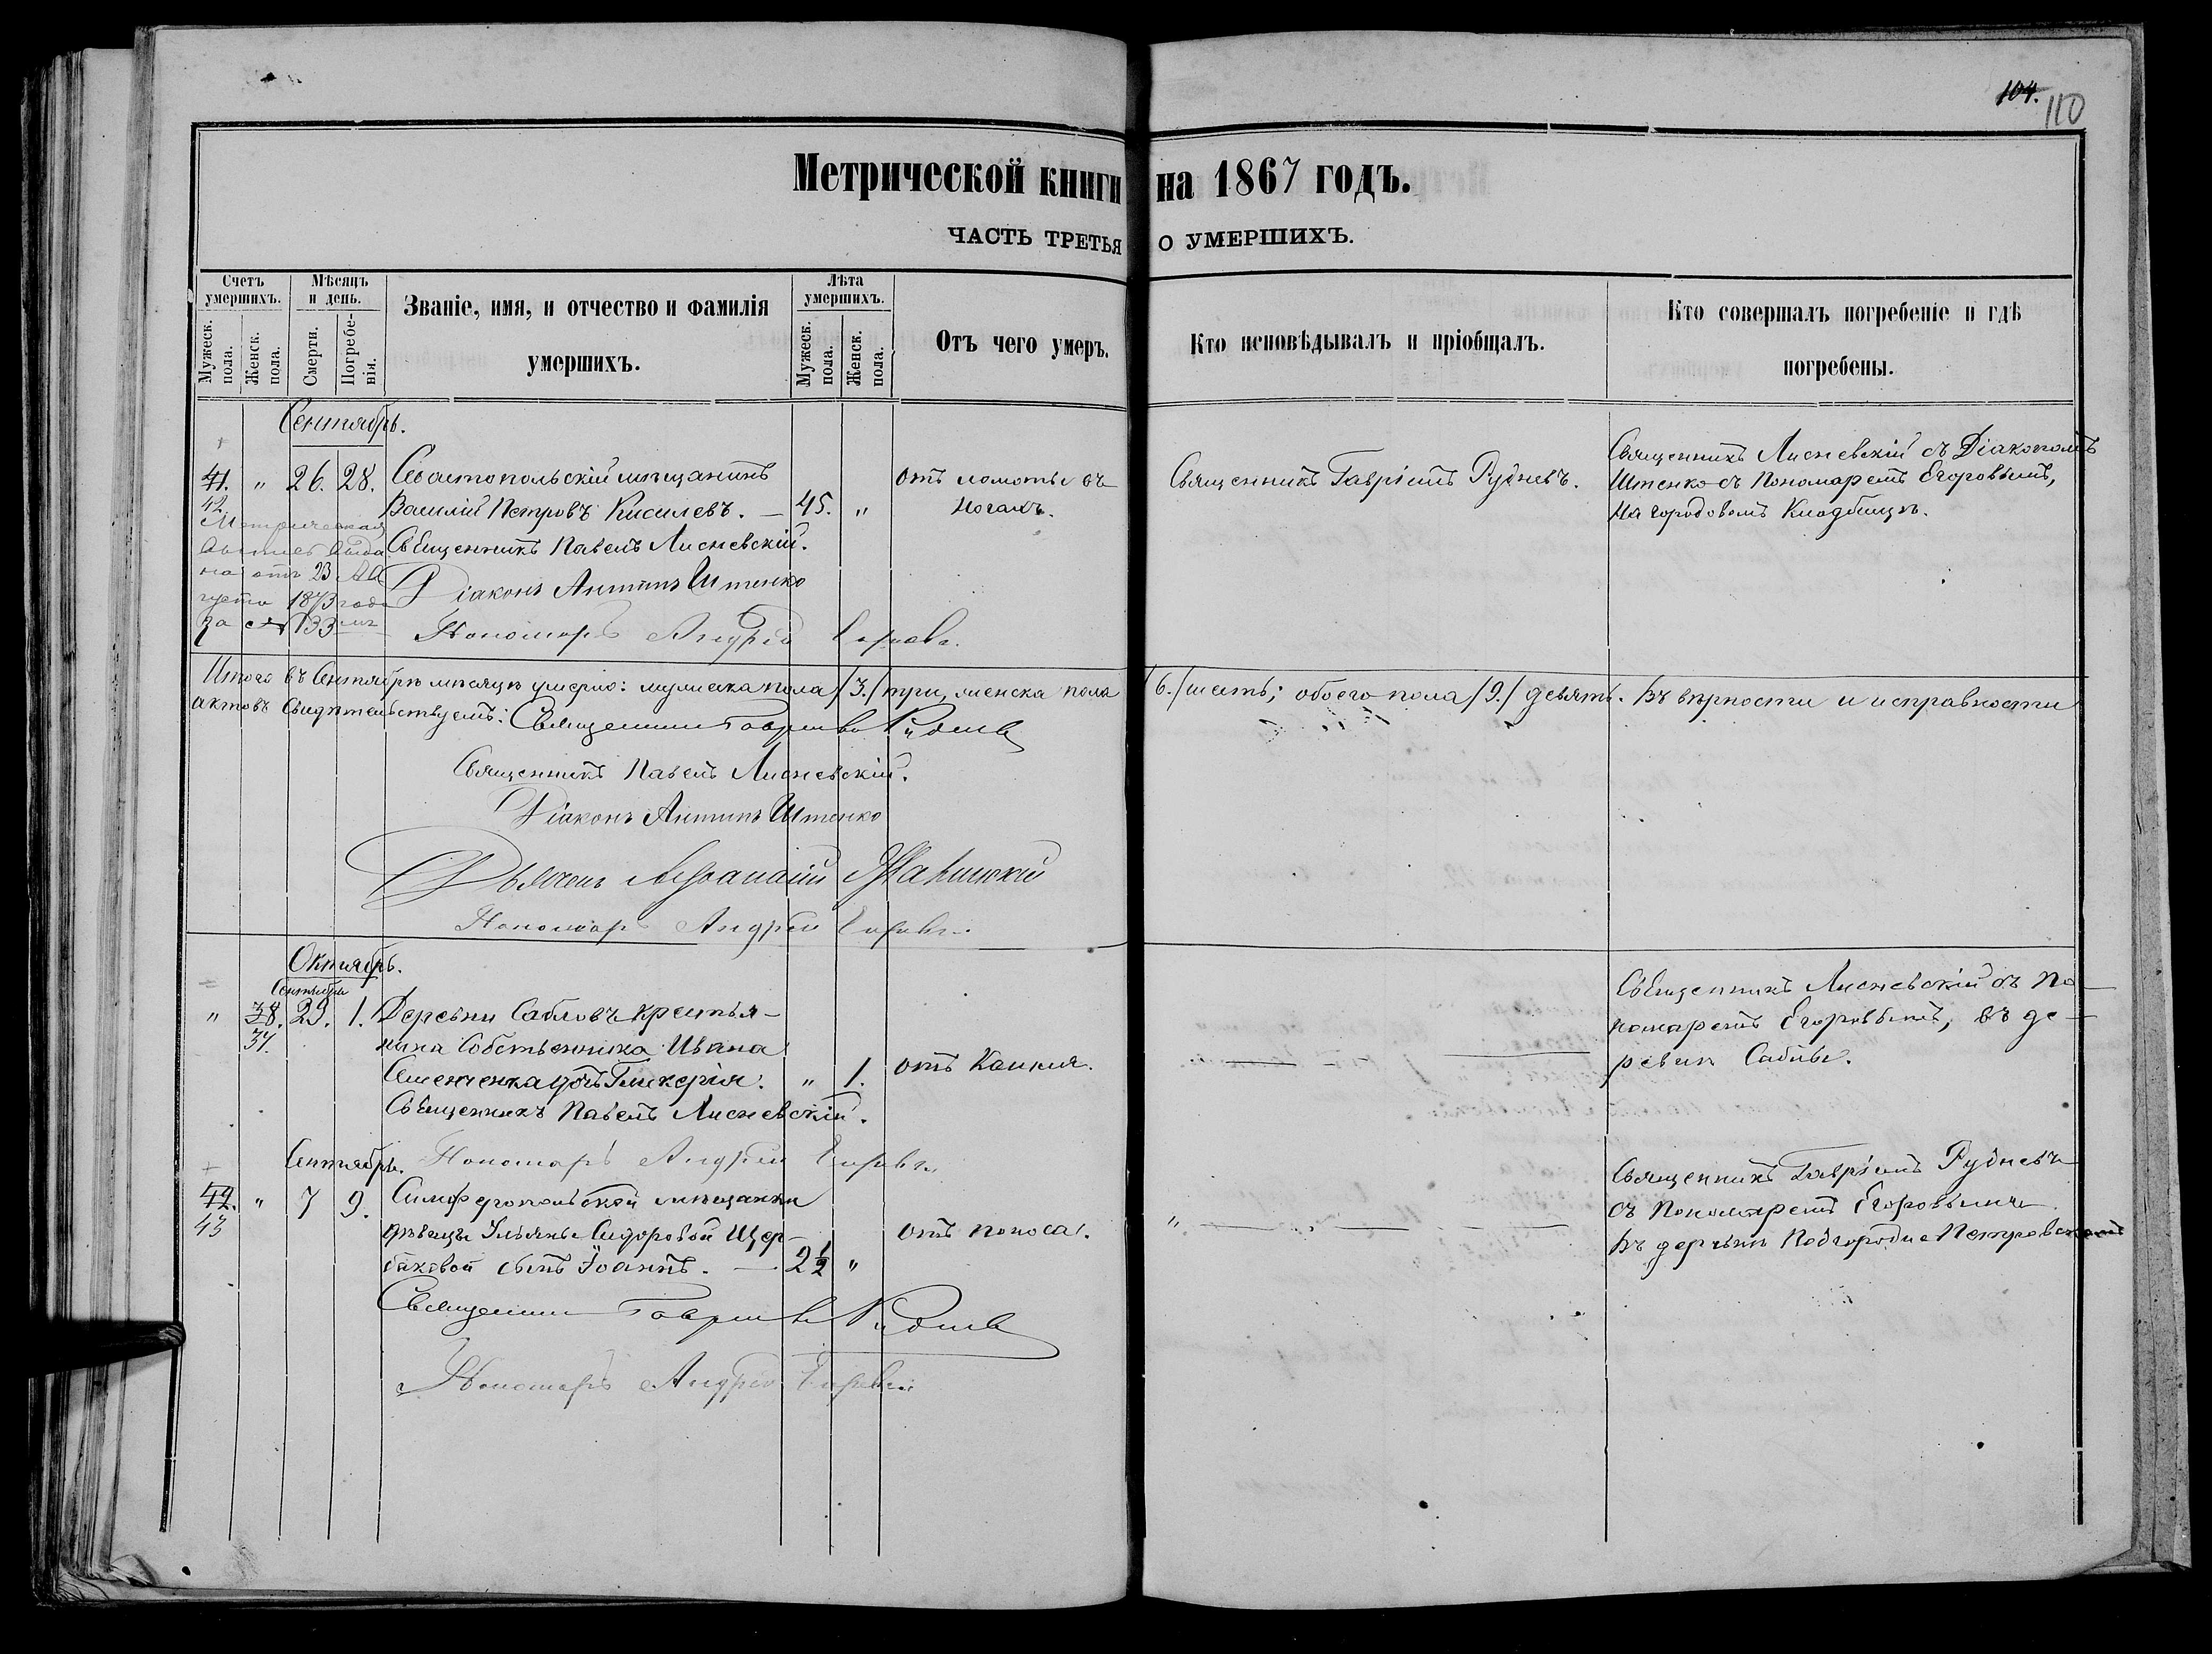 104.
110
Метрической книги на 1867 годъ.
ЧАСТЬ ТРЕТЬЯ О УМЕРШИХЪ.
Счетъ умершихъ.
Мужеск. пола.
Женск. пола.
Мѣсяцъ и день.
Смерти.
Погребенія.
Званіе, имя, и отчество и фамилія
умершихъ.
Лѣта умершихъ.
Мужеск. пола.
Женск. пола.
Отъ чего умеръ.
Кто исповѣдывалъ и пріобщалъ.
Кто совершалъ погребеніе и гдѣ
погребены.
Сентябрь.
41. " 26. 28. Севастопольскій мѣщанинъ
42
Василій Петровъ Киселевъ. — 45. "
отъ ломоты въ
ногахъ.
Священникъ Гавріилъ Рудневъ.
Священникъ Лисневскій съ Діакономъ
Штенко съ Пономаремъ Егоровымъ,
на городовомъ Кладбищѣ.
Метрическая
выда
на отъ 23 Ав
густа 1873 года
за № 133
Священникъ Павелъ Лисневскій.
Діаконъ Антипъ Штенко
Пономарь Андрей Егоровъ.
Итого въ Сентябрѣ мѣсяцѣ умерло: мужеска пола /3./ три, женска пола /6./ шесть; обоего пола /9./ девять. Въ вѣрности и исправности
актовъ свидѣтельствуемъ: Священникъ Гавріилъ Рудневъ
Священникъ Павелъ Лисневскій.
Діаконъ Антипъ Штенко
Дьячекъ Аѳанасій
Пономарь Андрей Егоровъ.
Октябрь.
Сентября
" 38. 29. 1. Деревни Сабловъ крестья-
37.
нина Собственника Ивана
Семенченка дочь Гликерія. " 1.
отъ Кашля.
Священникъ Лисневскій съ По-
номаремъ Егоровымъ, въ де-
ревнѣ Саблы.
Священникъ Павелъ Лисневскій.
Пономарь Андрей Егоровъ.
Сентябрь.
42. " 7 9. Симферопольской мѣщанки
43
дѣвицы Ульяны Сидоровой Щер-
баковой сынъ Іоаннъ. — 2 1/2 "
отъ поноса.
"
Священникъ Гавріилъ Рудневъ
съ Пономаремъ Егоровымъ
въ деревнѣ Подгородне Петровской
Священникъ Гавріилъ Рудневъ
Пономарь Андрей Егоровъ